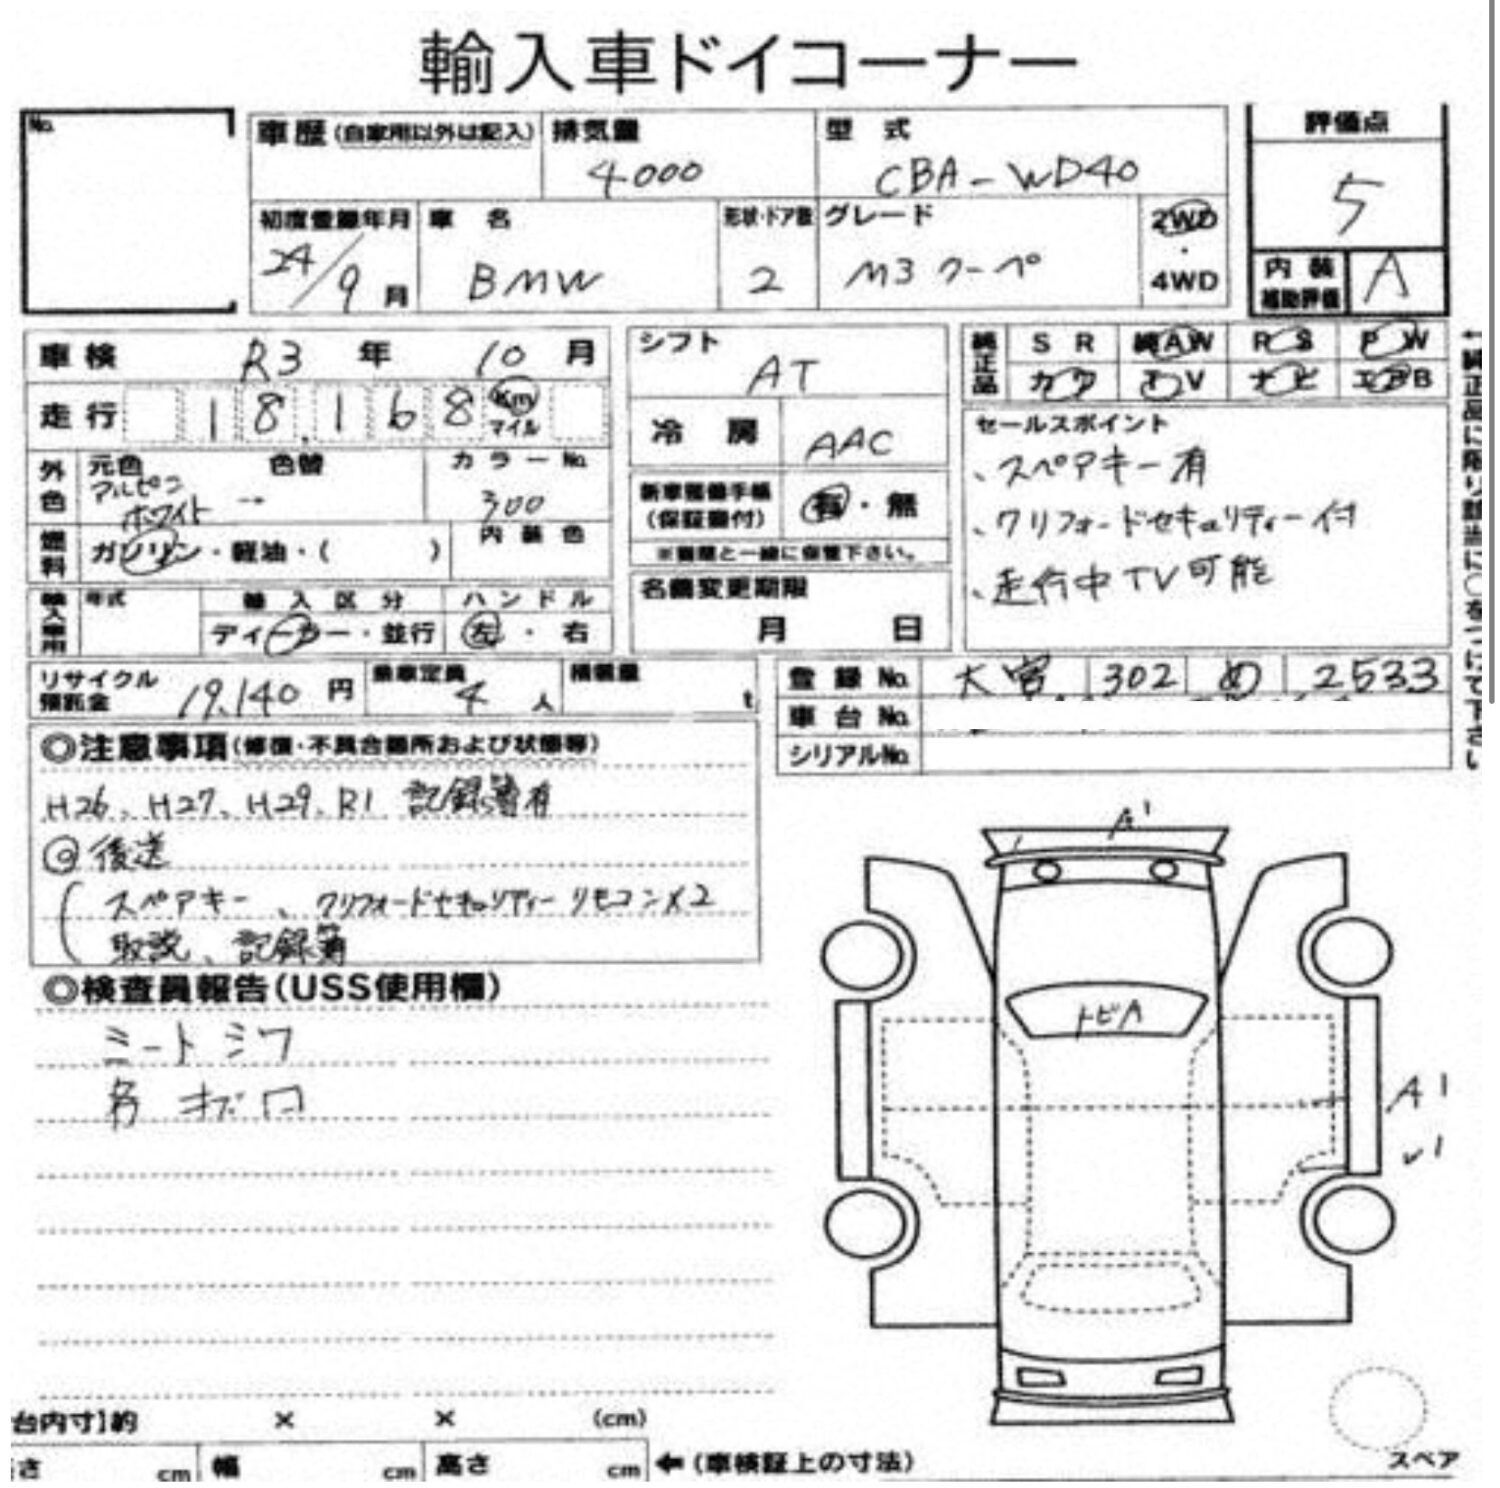 輸入車ドイコーナー
No.
車歴(自家用以外は記入)
排気量
4000
型 式
CBA-WD40
評価点
5
初度登録年月
24/9月
車 名
BMW
形状・ドア数
2
グレード
M3クーペ
2WD
・
4WD
内装
補助評価
A
車検 R3年 10月
走行 18,168 Km
マイル
外色
元色
アルピン
ホワイト
色替
→
カラーNo.
300
燃料
ガソリン・軽油・( )
内装色
輸入車用
年式
輸入区分
ディーラー・並行
ハンドル
左・右
シフト
AT
冷 房
AAC
新車整備手帳
(保証書付)
有・無
※書類と一緒に保管下さい。
名義変更期限
月 日
純正品
SR 純AW RS PW
カワ TV ナビ エアB
セールスポイント
、スペアキー有
、クリフォードセキュリティー付
、走行中TV可能
←純正品に限り該当に○をつけて下さい
リサイクル
預託金 19,140円
乗車定員
4人
積載量
t
登録No. 大宮 302 め 2533
車台No.
シリアルNo.
◎注意事項(修復・不具合箇所および状態等)
H26、H27、H29、R1 記録簿有
後送
(スペアキー、クリフォードセキュリティーリモコン×2
取説、記録簿
◎検査員報告(USS使用欄)
シートシワ
A1
トビA
A1
(cm)
台内寸]約 × × (cm)
さ cm 幅 cm 高さ cm ←(車検証上の寸法)
スペア